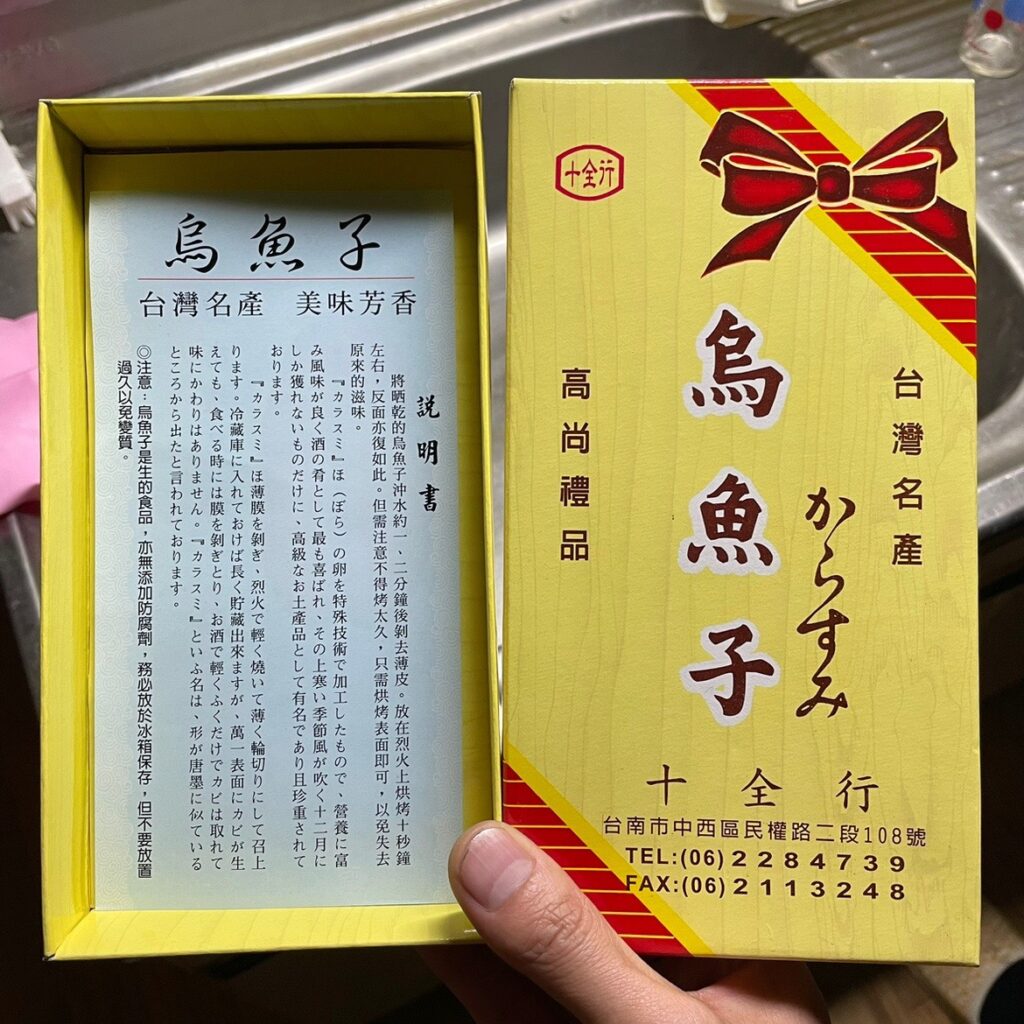 烏魚子
台灣名產 美味芳香
説明書
將晒乾的烏魚子沖水約一、二分鐘後剝去薄皮。放在烈火上烘烤十秒鐘
左右，反面亦復如此。但需注意不得烤太久，只需烘烤表面即可，以免失去
原來的滋味。
『カラスミ』ほ（ぼら）の卵を特殊技術で加工したもので、營養に富
み風味が良く酒の肴として最も喜ばれ、その上寒い季節風が吹く十二月に
しか獲れないものだけに、高級なお土產品として有名であり且珍重されて
おります。
『カラスミ』ほ薄膜を剝ぎ、烈火で輕く燒いて薄く輪切りにして召上
ります。冷藏庫に入れておけば長く貯藏出來ますが、萬一表面にカビが生
えても、食べる時には膜を剝ぎとり、お酒で輕くふくだけでカビは取れて
味にかわりはありません。『カラスミ』といふ名は、形が唐墨に似ている
ところから出たと言われております。
◎注意：烏魚子是生的食品，亦無添加防腐劑，務必放於冰箱保存，但不要放置
過久以免變質。
十全行
台灣名產
からすみ
烏魚子
高尚禮品
十全行
台南市中西區民權路二段108號
TEL:(06)2284739
FAX:(06)2113248